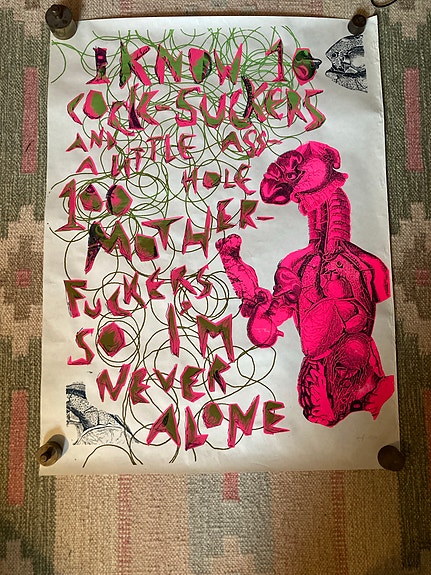 I KNOW 10
COCK-SUCKERS
AND A LITTLE ASS-
HOLE
100
MOTHER-
FUCKERS
SO I'M
NEVER
ALONE